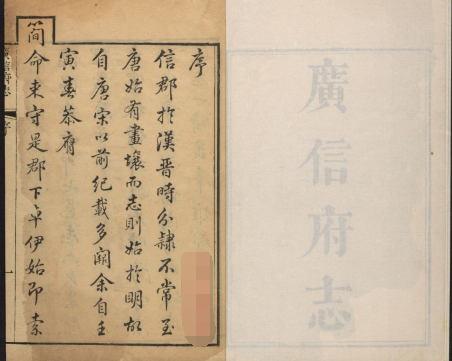 廣信府志
序
信郡於漢晉時分隸不常至
唐始有畫壤而志則始於明故
自唐宋以前紀載多闕余自壬
寅春恭膺
簡命來守是郡下車伊始即索
廣信府志
序
一